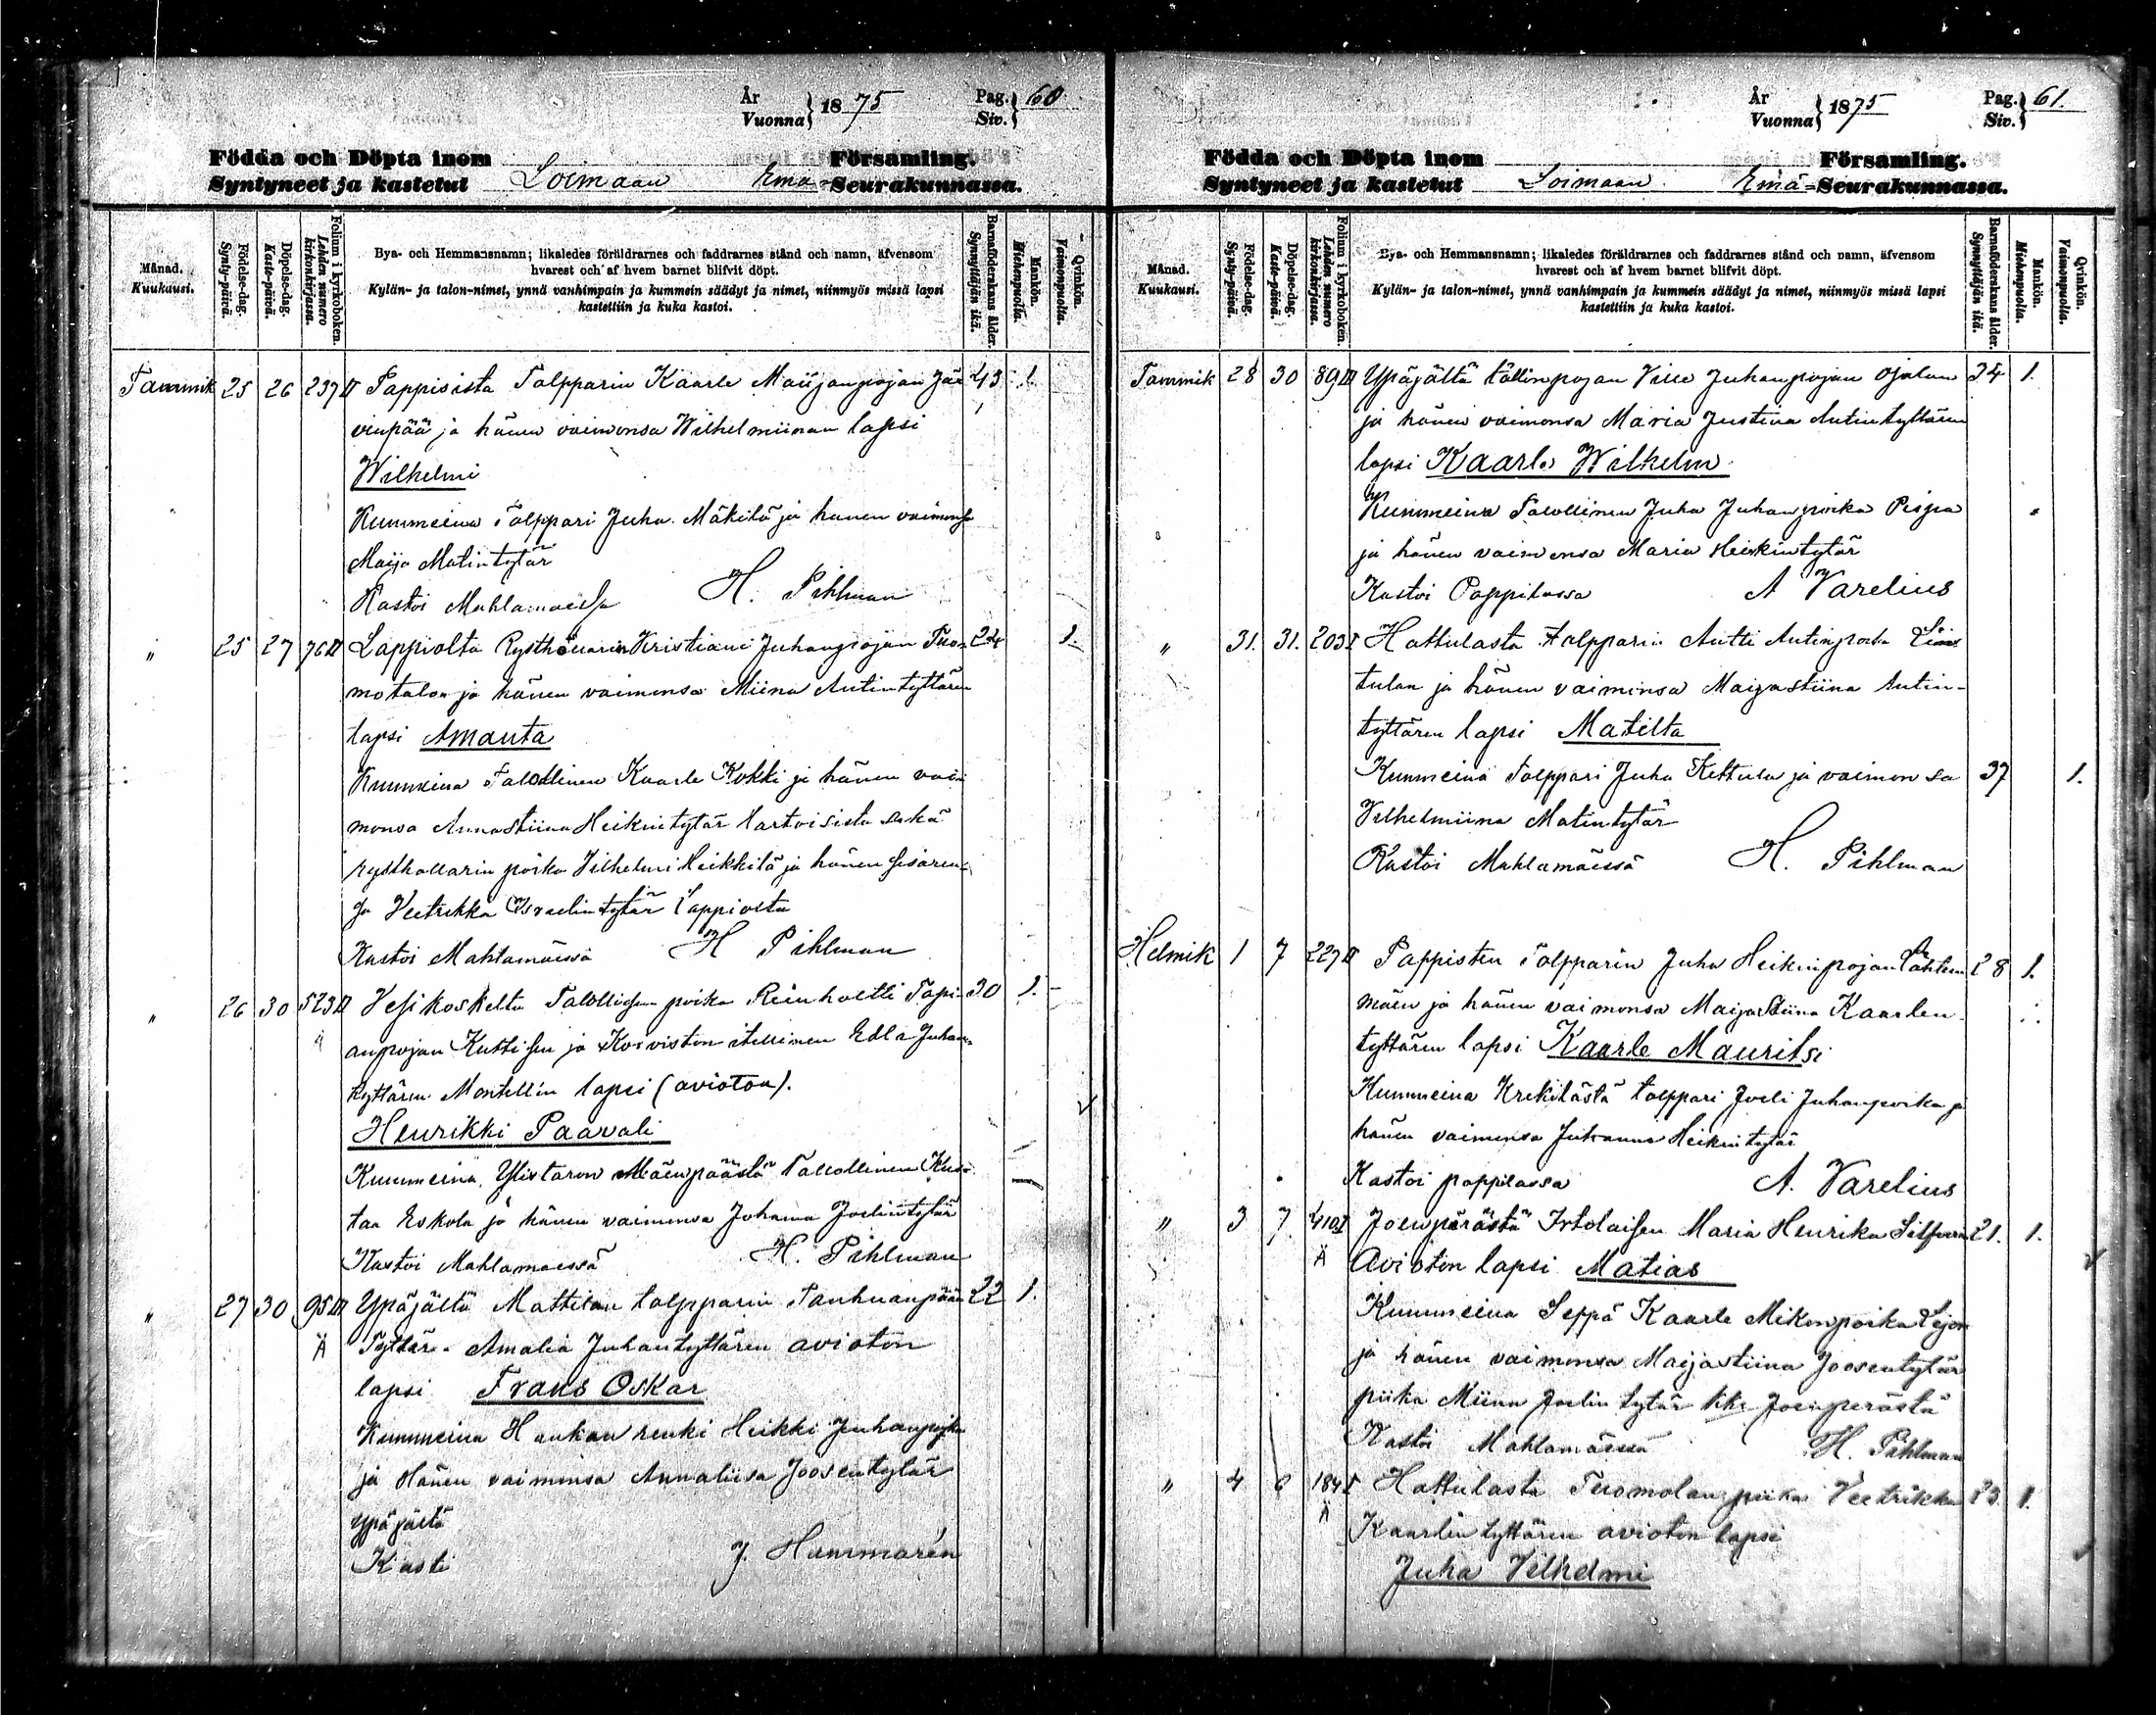 År Vuonna } 1875 Pag. Siv. } 60
Födda och Döpta inom Församling.
Syntyneet ja kastetut Loimaan Emä-Seurakunnassa.
Månad. Kuukausi.
Födelse-dag. Synty-päivä.
Döpelse-dag. Kaste-päivä.
Folium i kyrkoboken. Lehden numero kirkonkirjassa.
Bya- och Hemmansnamn; likaledes föräldrarnes och faddrarnes stånd och namn, äfvensom
hvarest och af hvem barnet blifvit döpt.
Kylän- ja talon-nimet, ynnä vanhimpain ja kummein säädyt ja nimet, niinmyös missä lapsi
kastettiin ja kuka kastoi.
Barnaföderskans ålder. Synnyttäjän ikä.
Mankön. Miehenpuolta.
Qvinkön. Vaimonpuolta.
Tammik 25 26 237 II Pappisista Talpparin Kaarle Maijanpojan Jär 43 1.
venpää ja hänen vaimonsa Wilhelmiinan lapsi
Wilhelmi
Kummeina Talppari Juha Mäkilä ja hänen vaimonsa
Maija Matintytär
Kastoi Mahlamäessä H. Pihlman
" 25 27 76 II Lappiolta Rysthöllarin Kristiani Juhanpojan Tuo- 24 1.
motalon ja hänen vaimonsa Miina Antintyttären
lapsi Amanta
Kummeina Talollinen Kaarle Kokki ja hänen vai
monsa Annastiina Heikintytär sekä
rysthollarin poika Vilhelmi Heikkilä ja hänen sisaren-
sa Veetrikka Israelintytär Lappiolta
Kastoi Mahlamäessä H Pihlman
" 26 30 523 II Vesikoskelta Talollisen poika Reinholtti Tapi- 30 1.
Ä anpojan ja Koiviston itellinen Edla Juhan-
tyttären Montellin lapsi (avioton).
Henrikki Paavali
Kummeina, Ylistaron Mäenpäästä Talollinen Kus-
taa Eskola ja hänen vaimonsa Johanna Joelintytär
Kastoi Mahlamäessä H. Pihlman
" 27 30 95 III Ypäjältä Mattilan talpparin Tanhuanpään 22 1.
Ä Tyttär. Amalia Juhantyttären avioton
lapsi Frans Oskar
Kummeina Haukan renki Heikki Juhanpoika
ja Hänen vaimonsa Annaliisa Joosentytär
Ypäjältä
Kasti J. Hammarén
År Vuonna } 1875 Pag. Siv. } 61.
Födda och Döpta inom Församling.
Syntyneet ja kastetut Loimaan Emä-Seurakunnassa.
Månad. Kuukausi.
Födelse-dag. Synty-päivä.
Döpelse-dag. Kaste-päivä.
Folium i kyrkoboken. Lehden numero kirkonkirjassa.
Bya- och Hemmansnamn; likaledes föräldrarnes och faddrarnes stånd och namn, äfvensom
hvarest och af hvem barnet blifvit döpt.
Kylän- ja talon-nimet, ynnä vanhimpain ja kummein säädyt ja nimet, niinmyös missä lapsi
kastettiin ja kuka kastoi.
Barnaföderskans ålder. Synnyttäjän ikä.
Mankön. Miehenpuolta.
Qvinkön. Vaimonpuolta.
Tammik 28 30 89 III Ypäjältä tällinpojan Ville Juhanpojan Ojalan 34 1.
ja hänen vaimonsa Maria Justina Antintyttären
lapsi Kaarle Wilhelm
Kummeina Talollinen Juha Juhanpoika Pispa
ja hänen vaimonsa Maria Heikintytär
Kastoi Pappilassa A Varelius
" 31. 31. 203 I Hattulasta talpparin Antti Antinpoika
tulan ja hänen vaiminsa Maijastiina Antin-
tyttären lapsi Matilta
Kummeina Talppari Juha Kettula ja vaimonsa 37 1.
Vilhelmiina Matintytär
Kastoi Mahlamäessä H. Pihlman
Helmik 1 7 229 II Pappisten Talpparin Juha Heikinpojan Lähteen 28 1.
mäen ja hänen vaimonsa Maijastiina Kaarlen
tyttären lapsi Kaarle Mauritsi
Kummeina Krekilästä talppari Joeli Juhanpoika ja
hänen vaimonsa Juhanna Heikintytär
Kastoi pappilassa A. Varelius
" 3 7 410 I Joenpärästä Irtolaisen Maria Henrika 21. 1.
Ä Avioton lapsi Matias
Kummeina Seppä Kaarle Mikonpoika Lejon
ja hänen vaimonsa Maijastiina Joosentytär
piika Miina Joelintytär kke Joenperästä
Kastoi Mahlamäessä H. Pihlman
" 4 6 184 I Hattulasta Tuomolan piika Veetrikka 23 1.
Ä Kaarlintyttären avioton lapsi
Juha Vilhelmi